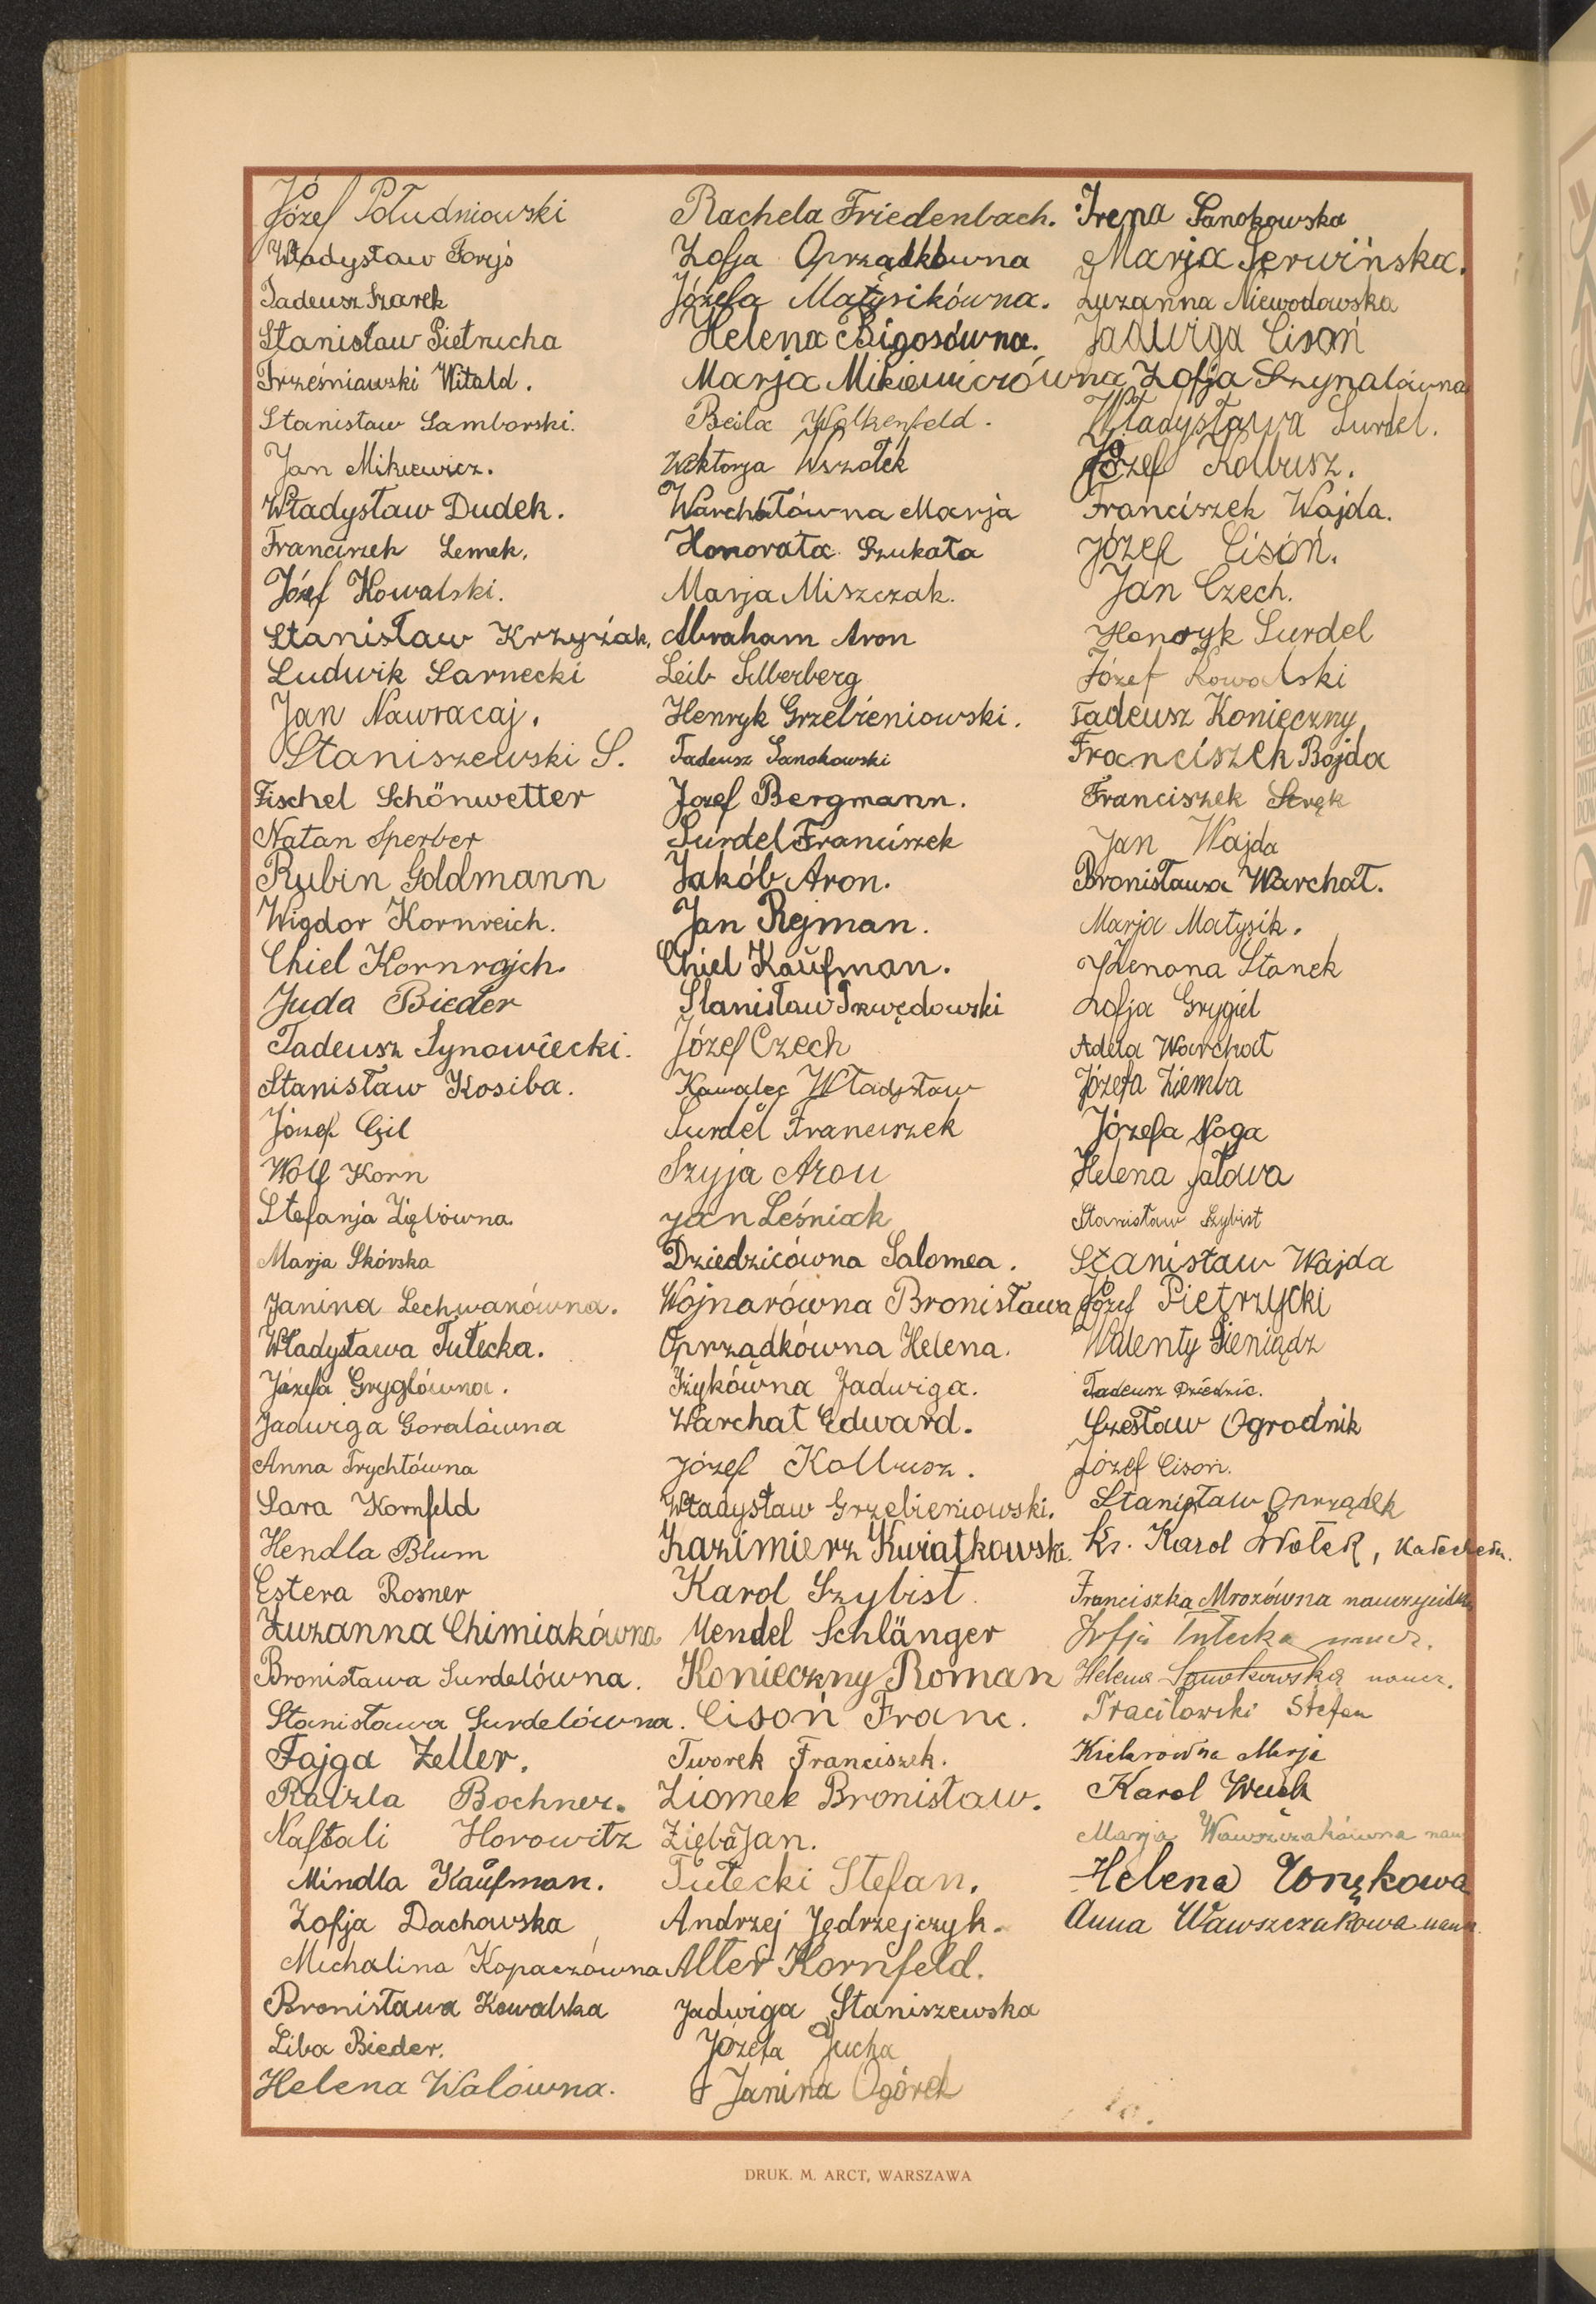 Józef Południowski
Władysław Foryś
Tadeusz Szarek
Stanisław Pietrucha
Trześniawski Witald.
Stanisław Samborski.
Jan Mikiewicz.
Władysław Dudek.
Franciszek Lemek.
Józef Kowalski.
Stanisław Krzyżak.
Ludwik Sarnecki
Jan Nawracaj.
Staniszewski S.
Fischel Schönwetter
Natan Sperber
Rubin Goldmann
Wigdor Kornreich.
Chiel Kornrajch.
Juda Bieder
Tadeusz Synowiecki.
Stanisław Kosiba.
Józef Gil
Wolf Korn
Stefanja Ziębówna
Marja Skórska
Janina Lechwarówna.
Władysława Tułecka.
Józefa Gryglówna.
Jadwiga Goralówna
Anna Trychtówna
Sara Kornfeld
Hendla Blum
Estera Rosner
Zuzanna Chimiakówna
Bronisława Surdelówna.
Stanisława Surdelówna.
Fajga Zeller.
Raizla Bochner.
Naftali Horowitz
Mindla Kaufman.
Zofja Dachowska
Michalina Kopaczówna
Bronisława Kowalska
Liba Bieder.
Helena Walówna.
Rachela Friedenbach.
Zofja Oprządkówna
Józefa Matysikówna.
Helena Bigosówna.
Marja Mikiewiczówna
Beila Walkenfeld.
Wiktorja Wszołek
Warchałówna Marja
Honorata Szukała
Marja Miszczak.
Abraham Aron
Leib Silberberg
Henryk Grzebieniowski.
Tadeusz Sanokowski
Józef Bergmann.
Surdel Franciszek
Jakób Aron.
Jan Rejman.
Chiel Kaufman.
Stanisław Trwędowski
Józef Czech
Kawalec Władysław
Surdel Franciszek
Szyja Aron
Jan Leśniak
Dziedzicówna Salomea.
Wojnarówna Bronisława
Oprządkówna Helena.
Żyłkówna Jadwiga.
Warchał Edward.
Józef Kolbusz.
Władysław Grzebieniowski.
Kazimierz Kwiatkowski.
Karol Szybist.
Mendel Schlänger
Konieczny Roman
Cisoń Franc.
Tworek Franciszek.
Ziomek Bronisław.
Zięba Jan.
Tułecki Stefan.
Andrzej Jędrzejczyk.
Alter Kornfeld.
Jadwiga Staniszewska
Józefa Jucha
Janina Ogórek
Irena Sanokowska
Marja Serwińska.
Zuzanna Niewodowska
Jadwiga Cisoń
Zofja Szynalówna
Władysława Surdel.
Józef Kolbusz.
Franciszek Wajda.
Józef Cisoń.
Jan Czech.
Henryk Surdel
Józef Kowalski
Tadeusz Konieczny
Franciszek Bojda
Franciszek Stręk
Jan Wajda
Bronisława Warchał.
Marja Matysik.
Zenona Stanek
Zofja Grygiel
Adela Warchał
Józefa Ziemba
Józefa Noga
Helena Jałowa
Stanisław Szybist
Stanisław Wajda
Józef Pietrzycki
Walenty Pieniądz
Tadeusz Dziedzic.
Czesław Ogrodnik
Józef Cisoń.
Stanisław Oprządek
Ks. Karol Wołek, Katecheta.
Franciszka Mrozówna nauczycielka
Zofja Tułecka naucz.
Helena Sanokowska naucz.
Tracilowski Stefan
Marja
Karol
Marja Wawszczakówna nau
Helena
Anna Wawszczakowa naucz.
DRUK. M. ARCT, WARSZAWA